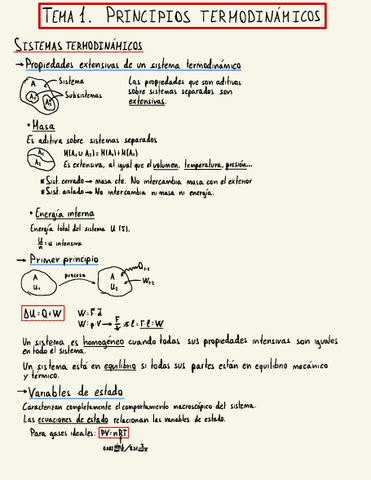 TEMA 1. PRINCIPIOS TERMODINÁMICOS
SISTEMAS TERMODINÁMICOS
→ Propiedades extensivas de un sistema termodinámico
A Sistema
A₁ A₂ Subsistemas
Las propiedades que son aditivas
sobre sistemas separados son
extensivas.
• Masa
Es aditiva sobre sistemas separados
A₁ M(A₁ ∪ A₂) = M(A₁) + M(A₂)
A₂ Es extensiva, al igual que el volumen, temperatura, presión...
* Sist. cerrado → masa cte. No intercambia masa con el exterior
* Sist. aislado → No intercambia ni masa ni energía.
• Energía interna
Energía total del sistema U (J).
= u intensiva
→ Primer principio
A U₁ proceso A U₂ Q₁₋₂
W₁₋₂
ΔU = Q + W W = F · d
W = p · V →
Un sistema es homogéneo cuando todas sus propiedades intensivas son iguales
en todo el sistema.
Un sistema está en equilibrio si todas sus partes están en equilibrio mecánico
y térmico.
→ Variables de estado
Caracterizan completamente el comportamiento macroscópico del sistema.
Las ecuaciones de estado relacionan las variables de estado.
Para gases ideales: PV = nRT